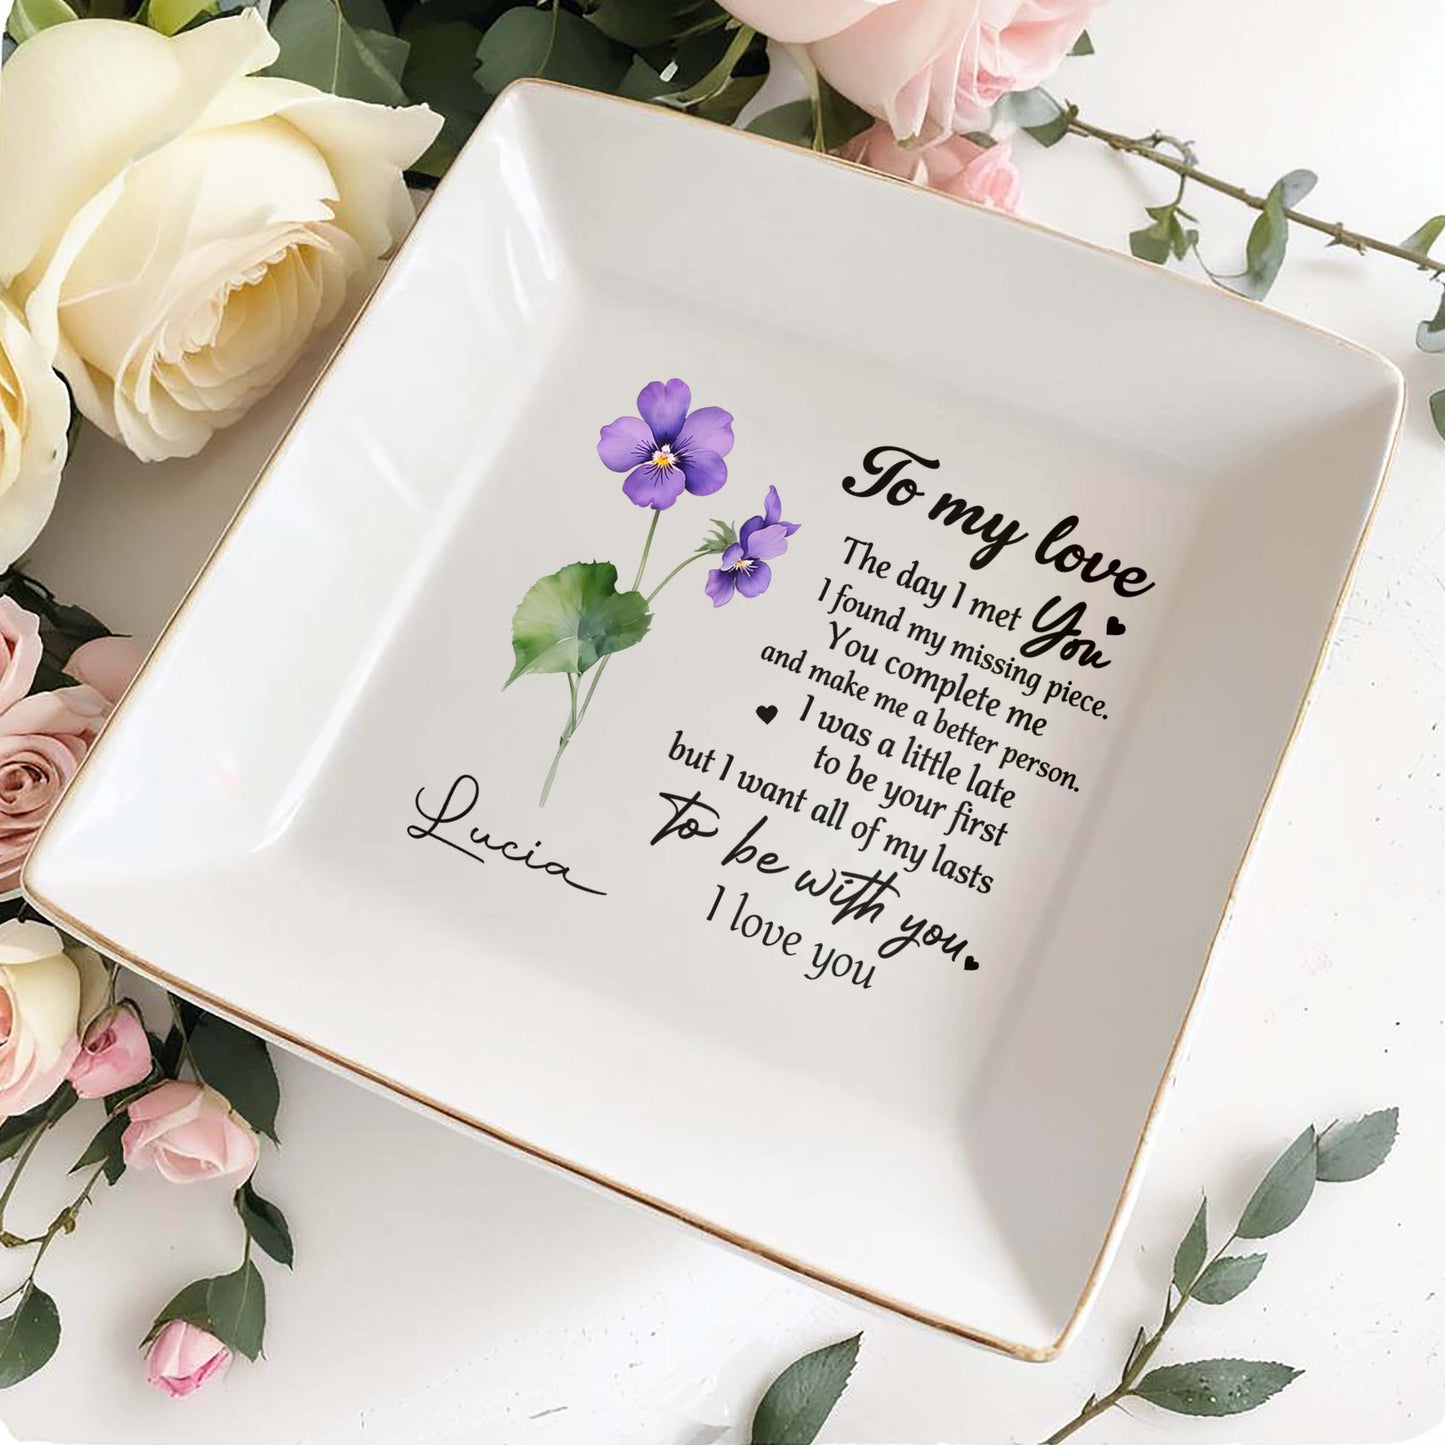 To my love
The day I met You
I found my missing piece.
You complete me
and make me a better person.
I was a little late
to be your first
but I want all of my lasts
To be with you.
I love you
Lucia